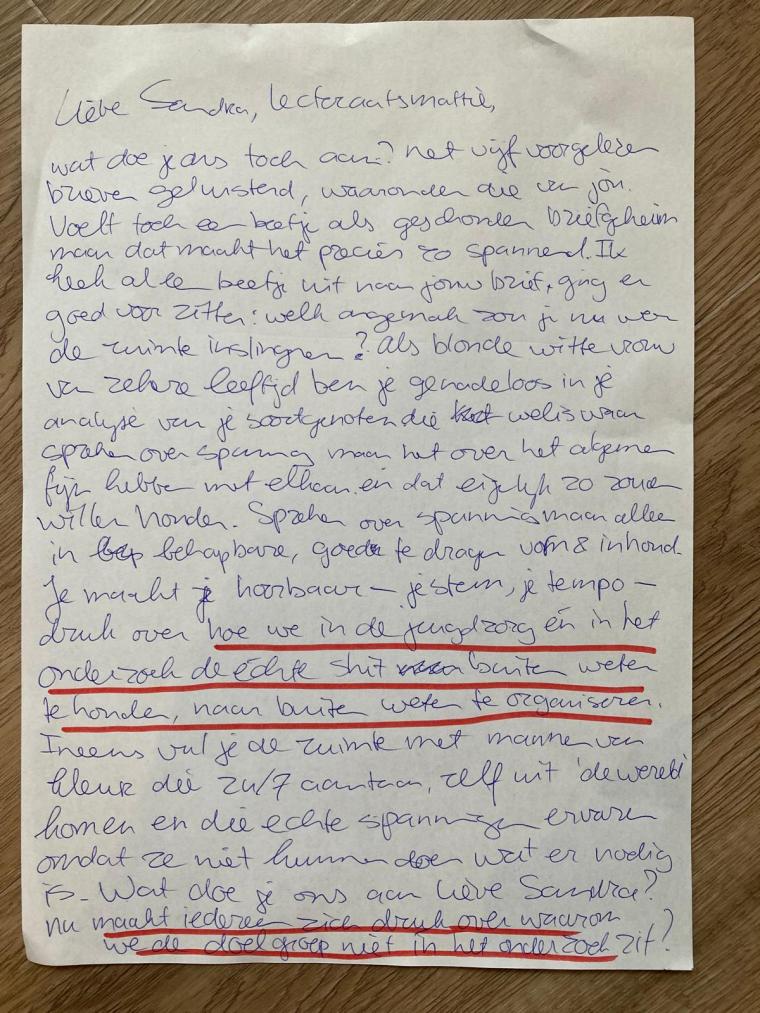 Lieve Sandra, Lectoraatsmattie,
wat doe je ons toch aan? net vijf voorgelezen
brieven geluisterd, waaronder die van jou.
Voelt toch een beetje als geschonden briefgeheim
maar dat maakt het precies zo spannend. Ik
keek al een beetje uit naar jouw brief, ging er
goed voor zitten: welk ongemak zou je nu weer
de ruimte inslingeren? Als blonde witte vrouw
van zekere leeftijd ben je genadeloos in je
analyse van je soortgenoten die weliswaar
spreken over spanning maar het over het algemeen
fijn hebben met elkaar en dat eigenlijk zo zouden
willen houden. Spreken over spanning maar alleen
in behapbare, goed te dragen vorm & inhoud.
Je maakt je hoorbaar – je stem, je tempo –
druk over hoe we in de jeugdzorg én in het
onderzoek de échte shit buiten weten
te houden, naar buiten weten te organiseren.
Ineens vul je de ruimte met mannen van
kleur die 24/7 aanstaan, zelf uit 'de wereld'
komen en die echte spanningen ervaren
omdat ze niet kunnen doen wat er nodig
is. Wat doe je ons aan lieve Sandra?
nu maakt iedereen zich druk over waarom
de doelgroep niet in het onderzoek zit?